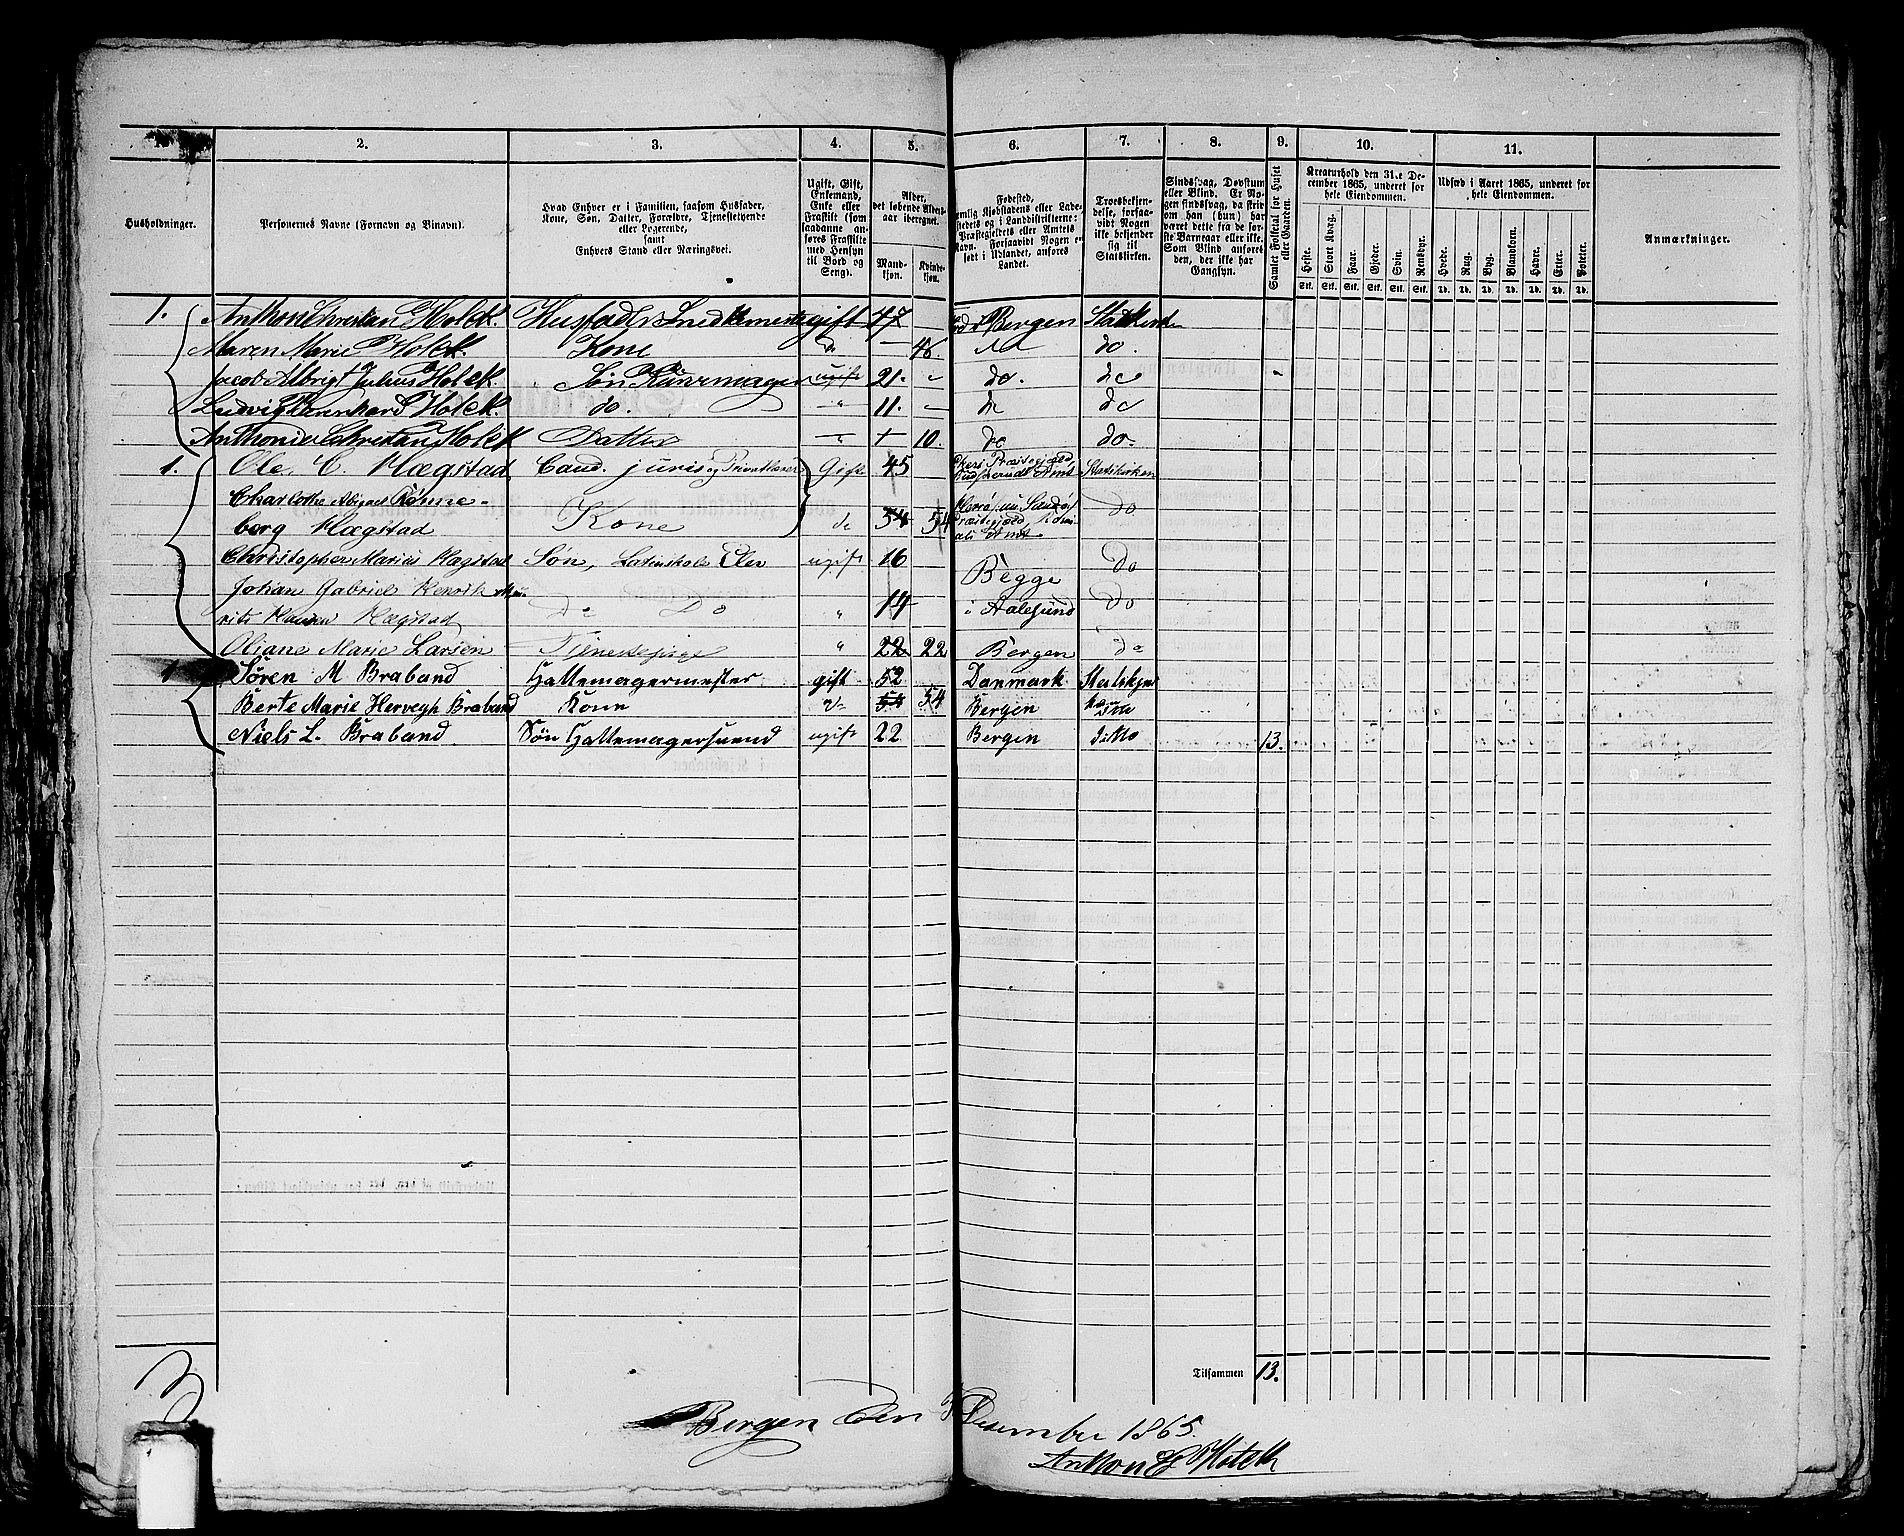 2. 3. 4. 5. 6. 7. 8. 9. 10. 11.
Husholdninger.
Personernes Navne (Fornavn og Binavn).
Hvad Enhver er i Familien, saasom Husfader,
Kone, Søn, Datter, Forældre, Tjenestetyende
eller Logerende,
samt
Enhvers Stand eller Næringsvei.
Ugift, Gift,
Enkemand,
Enke eller
Fraskilt (som
saadanne an-
føres Fraskilte
med Hensyn
til Bord og
Seng).
Alder,
det løbende Alders-
aar iberegnet.
Mand-
kjøn.
Kvinde-
kjøn.
Fødested,
nemlig Kjøbstadens eller Lade-
stedets og i Landdistrikterne:
Præstegjeldets eller Amtets
Navn. Forsaavidt Nogen er
født i Udlandet, anføres
Landet.
Troesbekjen-
delse, forsaa-
vidt Nogen
ikke bekjender
sig til
Statskirken.
Sindssvag, Døvstum
eller Blind. Er No-
gen sindssvag, da skrives
om han (hun) har
været dette fra de før-
ste Barneaar eller ikke.
Som Blind anføres
den, der ikke har
Gangsyn.
Samlet Folketal for Huset
eller Gaarden.
Kreaturhold den 31te De-
cember 1865, underet for
hele Eiendommen.
Heste. Stort Kvæg. Faar. Gjeder. Svin. Rensdyr.
Stk. Stk. Stk. Stk. Stk. Stk.
Udsæd i Aaret 1865, underet for
hele Eiendommen.
Hvede. Rug. Byg. Blandkorn. Havre. Erter. Poteter.
Td. Td. Td. Td. Td. Td. Td.
Anmærkninger.
1. Anthon Christian Holck. Husfader Snedkermester gift 47 Bergen Statskirken
Maren Marie Holck. Kone do — 46. do do.
Jacob Albrigt Julius Holck. Søn Kurvmager ugift 21. — do. do
Ludvig Holck. do. — " 11. — do do
Holck Datter — " 10. do do.
1. Ole C. Hægstad Cand. juris og Privatlærer Gift 45 Præstegjæld Amt Statskirken
Charlotte Abigael Rønne-
berg Hægstad Kone do 54 54 Præstegjæld, Amt do
Christopher Marius Hægstad Søn, Latinskole Elev ugift 16 Begge do
Johan Gabriel Henrik Mau-
rits Hægstad do Do " 14 i Aalesund do
Oliane Marie Larsen Tjenestepige " 22 22 Bergen do
1 Søren M Braband Hattemagermester gift 52 Danmark
Berte Marie Hervegh Braband Konn do 54 54 Bergen
Niels L. Braband. Søn Hattemagersvend ugift 22 Bergen ditto 13.
3
Tilsammen 13.
Bergen den December 1865.
Anthon C Holck